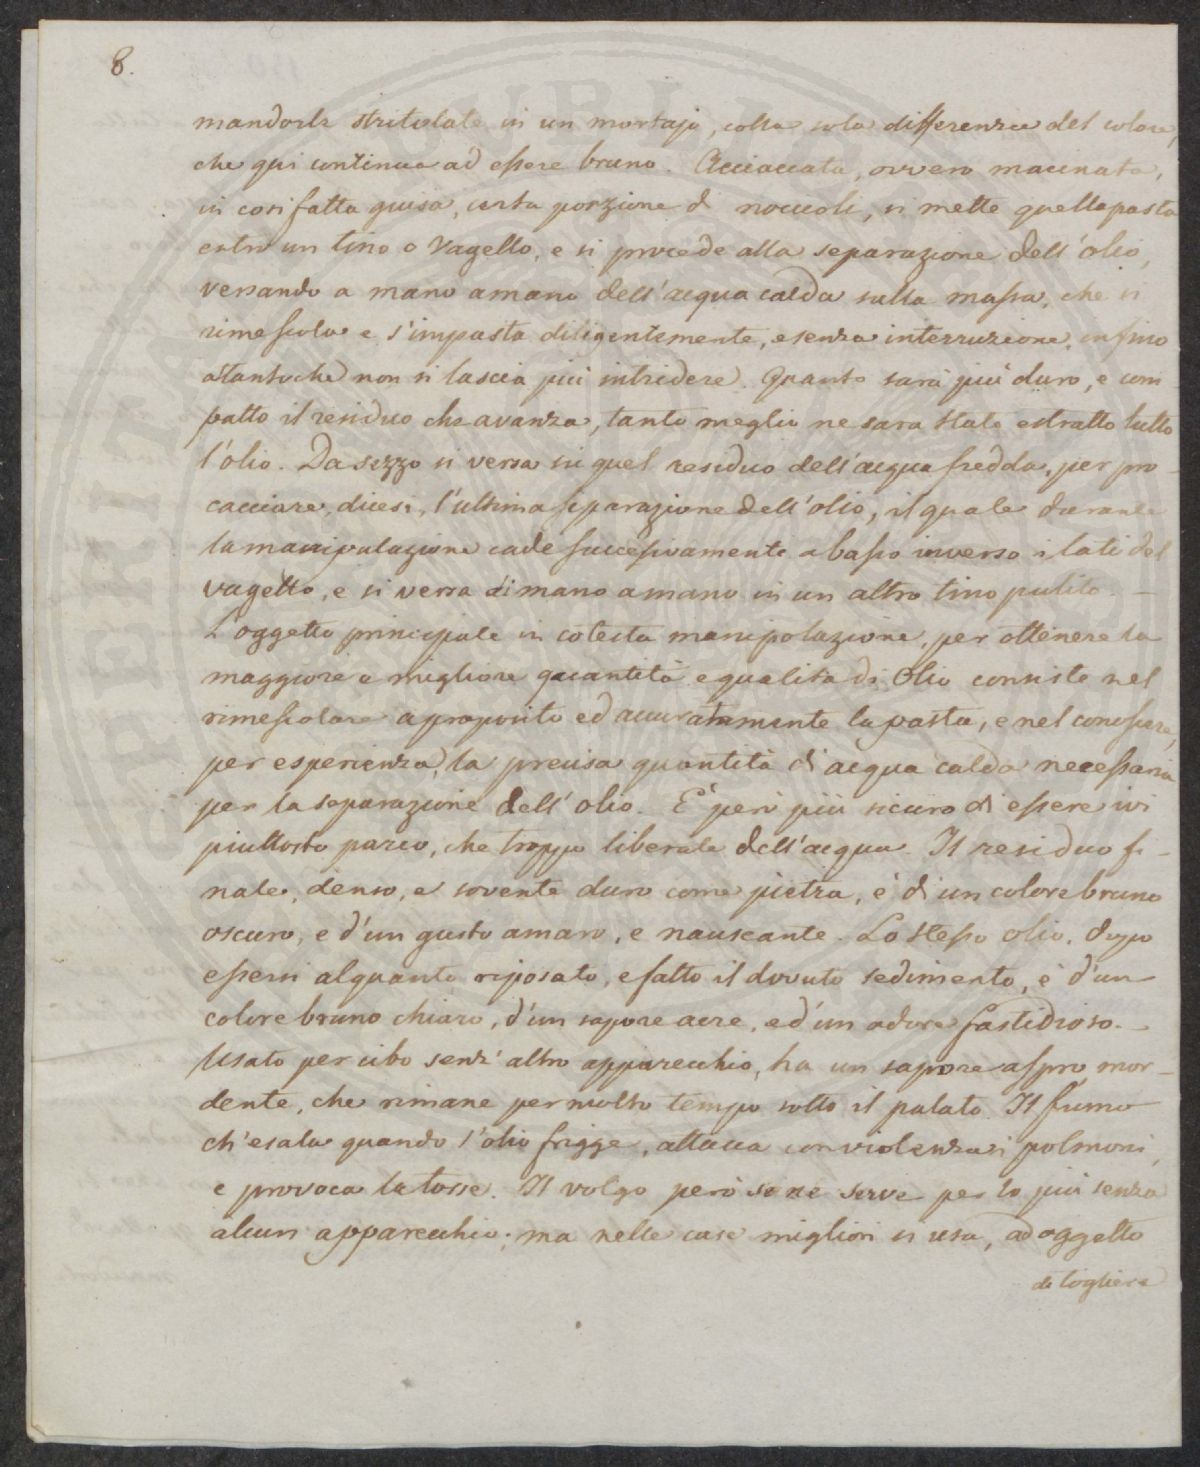 8.
mandorle stritolate in un mortajo, colla sola differenza del colore,
che qui continua ad essere bruno. Acciaccata, ovvero macinata,
in cosifatta guisa, certa porzione di noccioli, si mette quella pasta
entro un tino o vagello, e si procede alla separazione dell'olio,
versando a mano a mano dell'acqua calda sulla massa, che si
rimescola e s'impasta diligentemente, e senza interruzione, infino
atantoche non si lascia più intridere. Quanto sarà più duro, e com
patto il residuo che avanza, tanto meglio ne sara stato estratto tutto
l'olio. Da sezzo si versa su quel residuo dell'acqua fredda, per pro-
cacciare, dicesi, l'ultima separazione dell'olio, il quale durante
la manipolazione cade successivamente abasso inverso i lati del
vagello, e si versa di mano a mano in un altro tino pulito. —
L'oggetto principale in cotesta manipolazione, per ottenere la
maggiore e migliore quantità e qualità di Olio consiste nel
rimescolare a proposito ed accuratamente la pasta, e nel conoscere,
per esperienza, la precisa quantità di acqua calda necessaria
per la separazione dell'olio. E' però più sicuro di essere ivi
piuttosto parco, che troppo liberale dell'acqua. Il residuo fi-
nale, denso, e sovente duro come pietra, è di un colore bruno
oscuro, e d'un gusto amaro, e nauseante. Lo stesso olio, dopo
essersi alquanto riposato, e fatto il dovuto sedimento, è d'un
colore bruno chiaro, d'un sapore acre, e d'un odore fastidioso.
Usato per cibo senz'altro apparecchio, ha un sapore aspro mor-
dente, che rimane per molto tempo sotto il palato. Il fumo
ch'esala quando l'olio frigge, attacca con violenza i polmoni,
e provoca la tosse. Il volgo però se ne serve per lo più senza
alcun apparecchio; ma nelle case migliori si usa, ad oggetto
di togliere